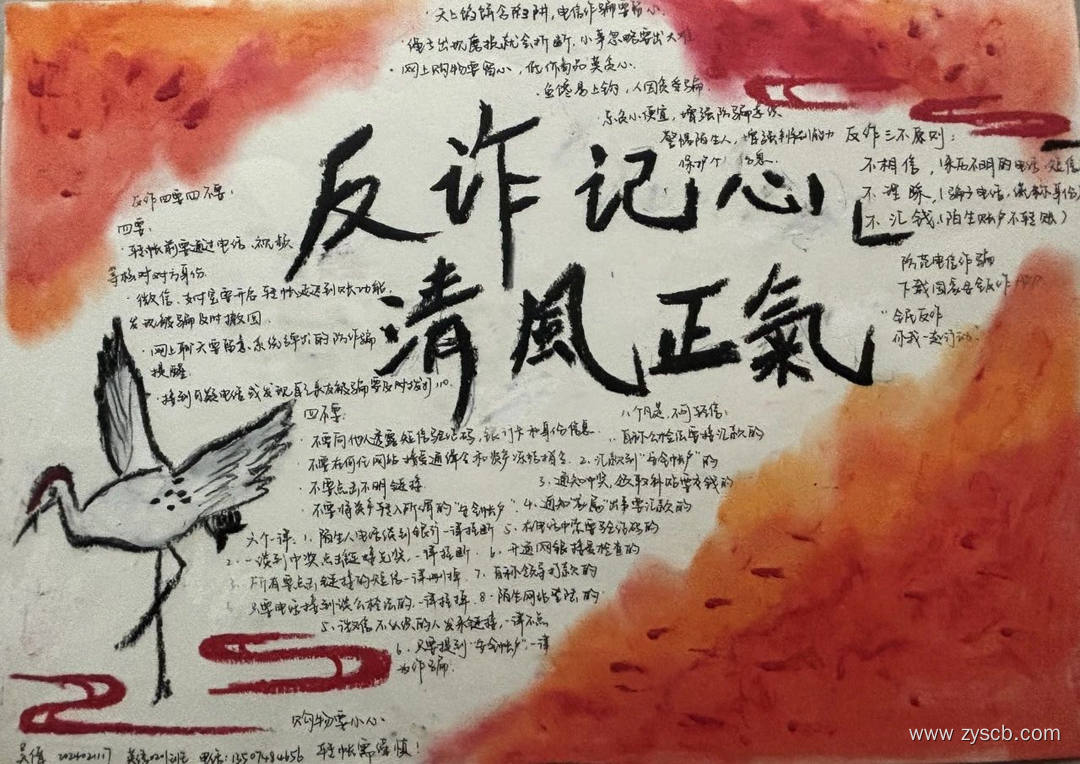 天上的馅含陷阱,电信诈骗要留心.
·绳子出现磨损就会折断,小事忽略要出大难
·网上购物要留心,低价商品莫贪心.
·鱼馋易上钩,人因贪受骗.
东贪小便宜,增强防骗意识
警惕陌生人,增强判别能力
保护个 信息.
反诈记心
清風正氣
反诈三不原则:
不相信,(来历不明的电话、短信
不理睬,(骗子电话,
不汇钱(陌生账户不轻账)
防范电信诈骗
下载国家反诈APP
"全民反诈
你我一起行动.
反诈四要四不要:
四要:
·转帐前要通过电话、视频
等核对对方身份.
·微信、支付宝要开启转帐延迟到账功能,
发现被骗及时撤回.
·网上聊天要留意系统弹出的防诈骗
提醒
·接到可疑电信或发现自己亲友被骗要及时拨打110.
四不要:
·不要向他人透露短信验证码,银行卡和身份信息.
·不要在何何网站接受通缉令和资产冻结相令.
·不要点击不明链接.
·不要将资产转入所谓的"安全帐户".
八个凡是,不可轻信:
1.自称公检法要转汇款的
2.汇款到"安全帐户"的
3.通知中奖,领取补贴要交钱的
4.通知"家属"出事要汇款的
5.在电话中索要验证码的
6.开通网银接受检查的
7.自称领导打款的
8.陌生网站登陆的
六个一律:1.陌生人电话谈到银行一律挂断
2.一谈到中奖点击链接兑奖,一律挂断.
3.所有要点击链接的短信一律删掉.
只要电话接到谈公检法的.一律挂掉.
5.微信不认识的人发来链接,一律不点
6.只要提到"安全帐户",一律
为诈骗.
购物要小心
转帐需谨慎!
吴倩 202402117 英语0201班 电话:13507484656
www.zyscb.com